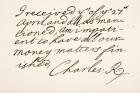 I received yrs of ye 27th
April and all as men
tioned, am impati-
ent to have all our
money matters fin
ished
Charles. R